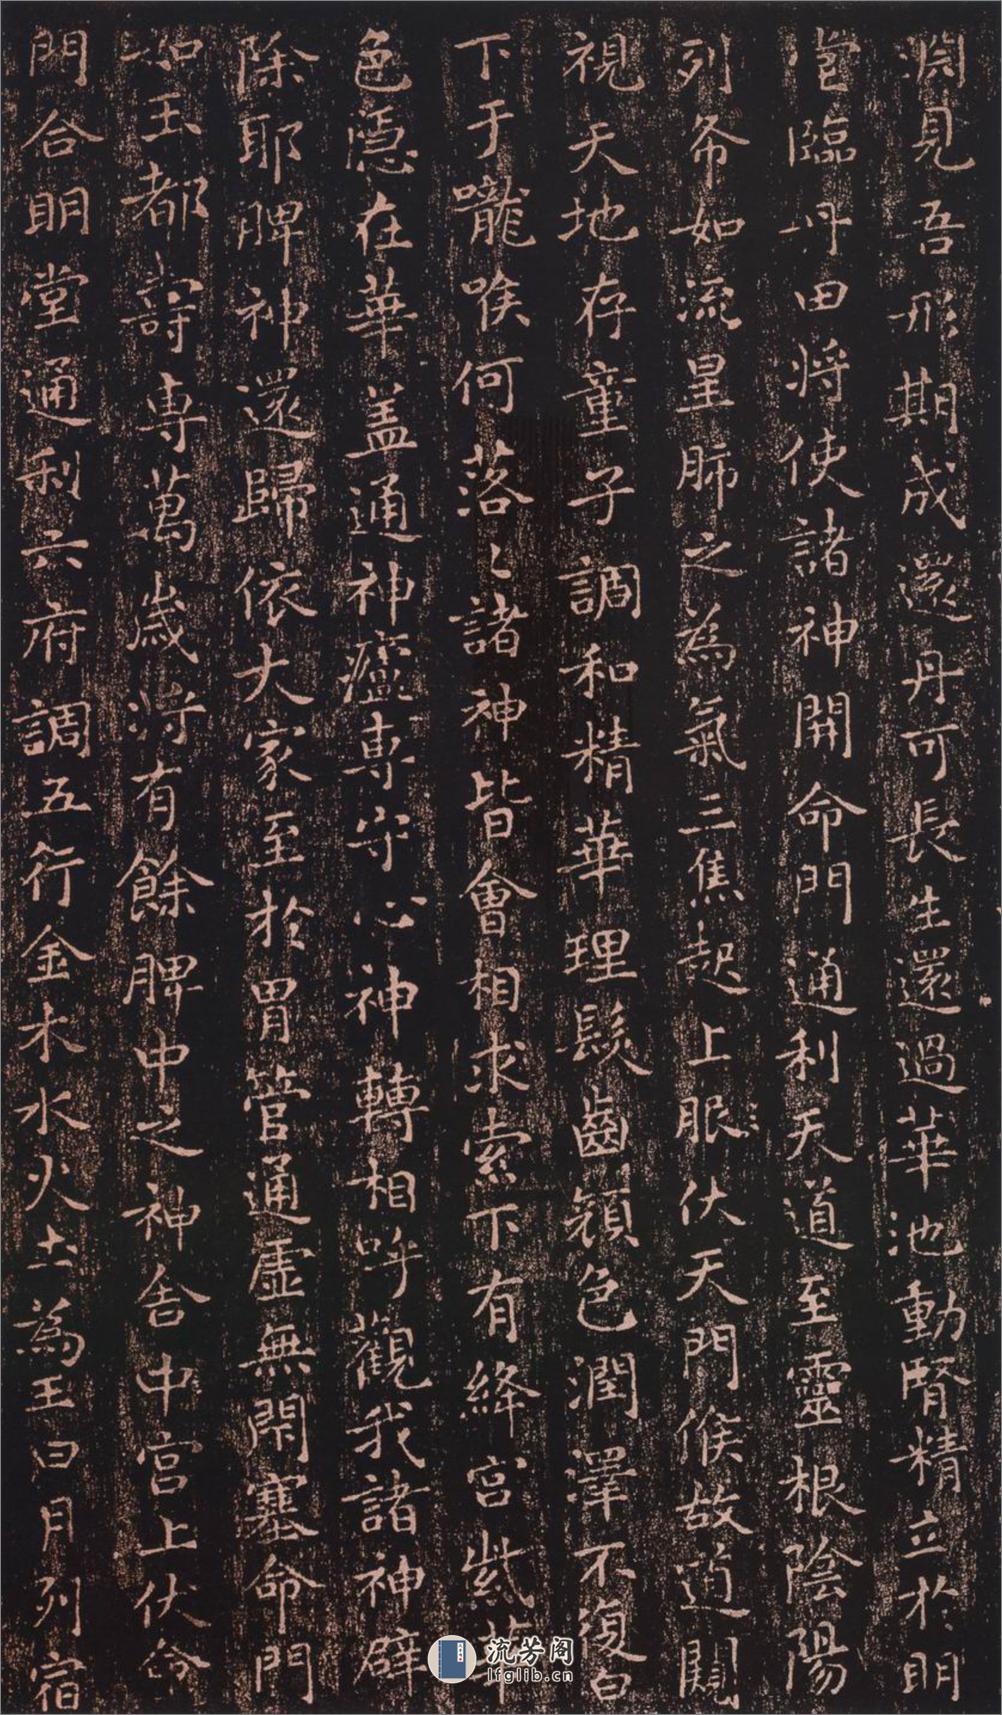 淵見吾形期成還丹可長生還過華池動腎精立於明
堂臨丹田將使諸神開命門通利天道至靈根陰陽
列布如流星肺之為氣三焦起上服伏天門候故道闚
視天地存童子調和精華理髮齒顏色潤澤不復白
下于嚨喉何落〻諸神皆會相求索下有絳宮紫華
色隱在華盖通神廬專守心神轉相呼觀我諸神辟
除耶脾神還歸依大家至於胃管通虛無閉塞命門
如玉都壽專萬歲將有餘脾中之神舍中宮上伏命
門合明堂通利六府調五行金木水火土為王日月列宿
流芳阁
lfglib.cn